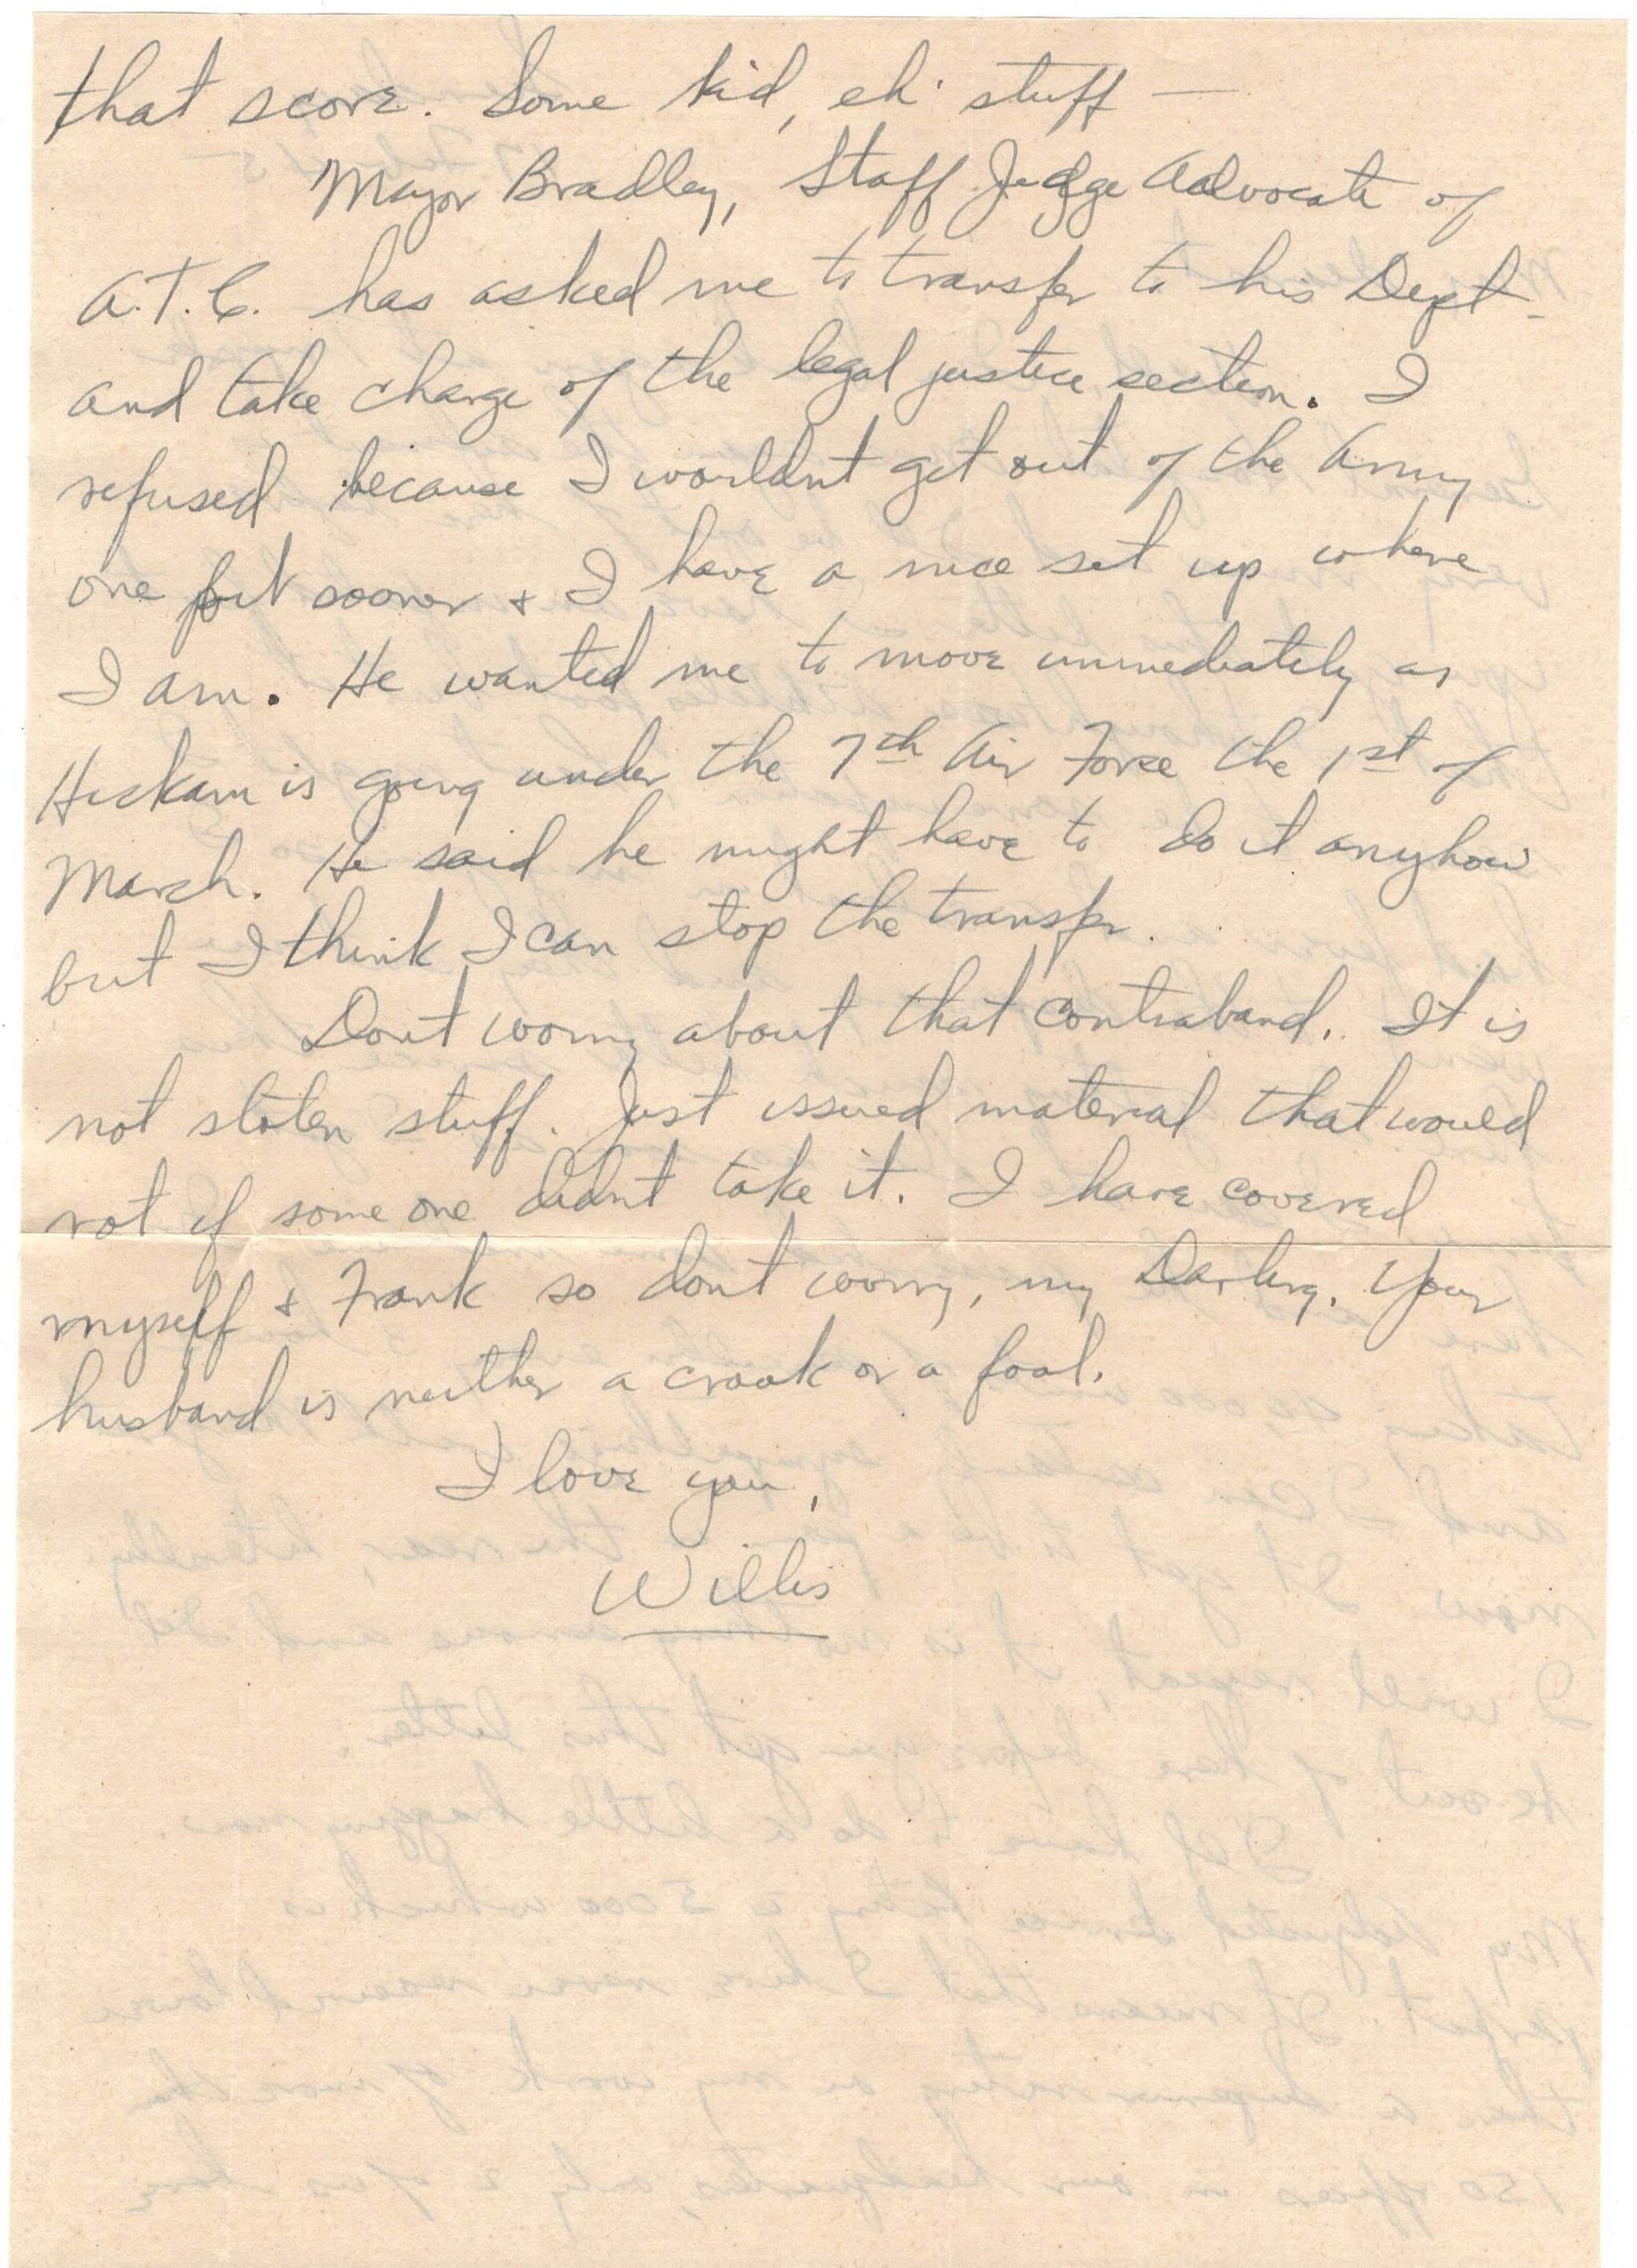 that score. Some kid, eh' stuff —
Major Bradley, Staff Judge Advocate of
A.T.C. has asked me to transfer to his Dept-
and take charge of the legal justice section. I
refused because I wouldnt get out of the Army
one bit sooner & I have a nice set up where
I am. He wanted me to move immediately as
Hickam is going under the 7th Air Force the 1st of
March. He said he might have to do it anyhow
but I think I can stop the transfer.
Dont worry about that contraband. It is
not stolen stuff. Just issued material that would
rot if some one didnt take it. I have covered
myself & Frank so dont worry, my Darling. Your
husband is neither a crook or a fool.
I love you,
Willis